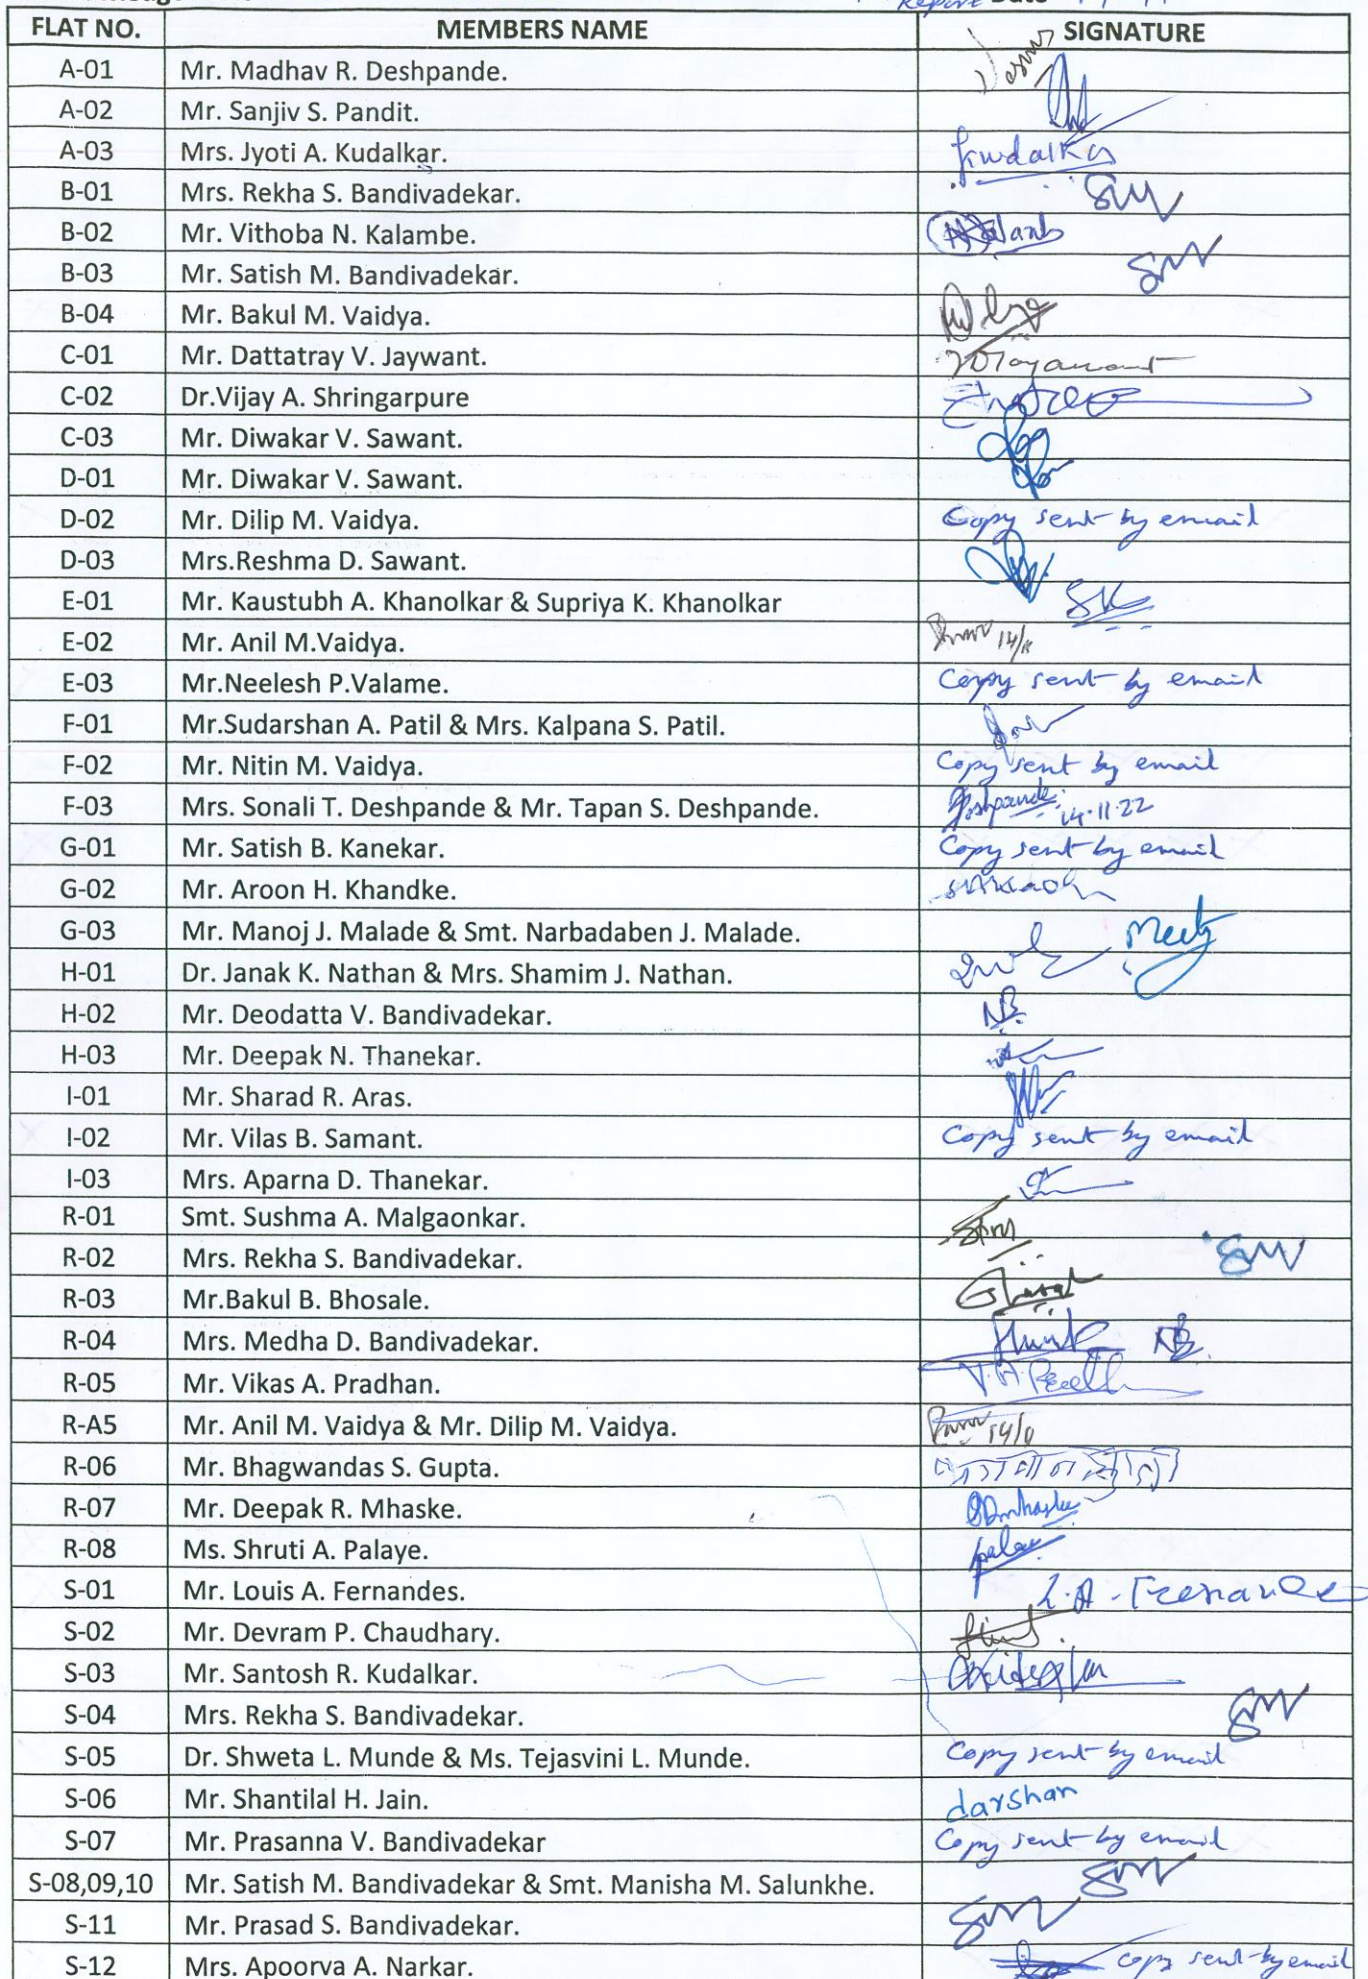 Report Date
FLAT NO. MEMBERS NAME SIGNATURE
A-01 Mr. Madhav R. Deshpande.
A-02 Mr. Sanjiv S. Pandit.
A-03 Mrs. Jyoti A. Kudalkar. Kudalkar
B-01 Mrs. Rekha S. Bandivadekar.
B-02 Mr. Vithoba N. Kalambe.
B-03 Mr. Satish M. Bandivadekar.
B-04 Mr. Bakul M. Vaidya.
C-01 Mr. Dattatray V. Jaywant.
C-02 Dr.Vijay A. Shringarpure
C-03 Mr. Diwakar V. Sawant.
D-01 Mr. Diwakar V. Sawant.
D-02 Mr. Dilip M. Vaidya. Copy sent by email
D-03 Mrs.Reshma D. Sawant.
E-01 Mr. Kaustubh A. Khanolkar & Supriya K. Khanolkar SK
E-02 Mr. Anil M.Vaidya. 14/11
E-03 Mr.Neelesh P.Valame. Copy sent by email
F-01 Mr.Sudarshan A. Patil & Mrs. Kalpana S. Patil.
F-02 Mr. Nitin M. Vaidya. Copy sent by email
F-03 Mrs. Sonali T. Deshpande & Mr. Tapan S. Deshpande. Deshpande 14.11.22
G-01 Mr. Satish B. Kanekar. Copy sent by email
G-02 Mr. Aroon H. Khandke.
G-03 Mr. Manoj J. Malade & Smt. Narbadaben J. Malade.
H-01 Dr. Janak K. Nathan & Mrs. Shamim J. Nathan.
H-02 Mr. Deodatta V. Bandivadekar. NB
H-03 Mr. Deepak N. Thanekar.
I-01 Mr. Sharad R. Aras.
I-02 Mr. Vilas B. Samant. Copy sent by email
I-03 Mrs. Aparna D. Thanekar.
R-01 Smt. Sushma A. Malgaonkar.
R-02 Mrs. Rekha S. Bandivadekar.
R-03 Mr.Bakul B. Bhosale.
R-04 Mrs. Medha D. Bandivadekar. NB
R-05 Mr. Vikas A. Pradhan.
R-A5 Mr. Anil M. Vaidya & Mr. Dilip M. Vaidya.
R-06 Mr. Bhagwandas S. Gupta.
R-07 Mr. Deepak R. Mhaske. SDmhaske
R-08 Ms. Shruti A. Palaye.
S-01 Mr. Louis A. Fernandes.
S-02 Mr. Devram P. Chaudhary.
S-03 Mr. Santosh R. Kudalkar.
S-04 Mrs. Rekha S. Bandivadekar.
S-05 Dr. Shweta L. Munde & Ms. Tejasvini L. Munde. Copy sent by email
S-06 Mr. Shantilal H. Jain. darshan
S-07 Mr. Prasanna V. Bandivadekar Copy sent by email
S-08,09,10 Mr. Satish M. Bandivadekar & Smt. Manisha M. Salunkhe.
S-11 Mr. Prasad S. Bandivadekar.
S-12 Mrs. Apoorva A. Narkar. copy sent by email